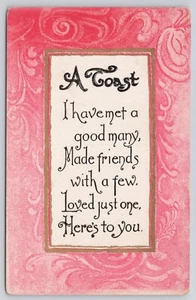 A Toast
I have met a
good many,
Made friends
with a few.
Loved just one,
Here's to you.